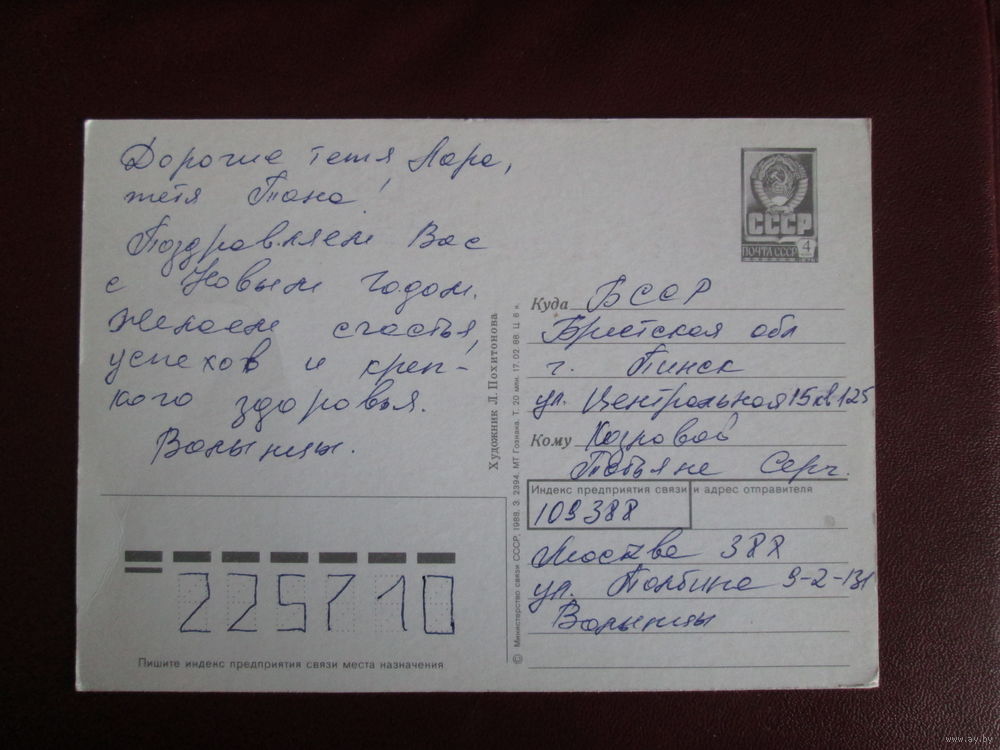 Дорогие тетя Лара,
тетя Тана!
Поздравляем Вас
с Новым Годом.
Желаем счастья,
успехов и креп-
кого здоровья.
Волынцы.
СССР
ПОЧТА СССР 4
Куда БССР
Брестская обл
г. Пинск
ул. Центральная 15 кв 125
Кому
Татьяне Серг.
Индекс предприятия связи и адрес отправителя
109388
Москва 388
ул. Полбина 9-2-131
Волынцы
Художник Л. Похитонова
© Министерство связи СССР, 1988. З. 2394. МТ Гознака. Т. 20 млн. 17.02.88. Ц. 6 к.
225710
Пишите индекс предприятия связи места назначения
www.ay.by